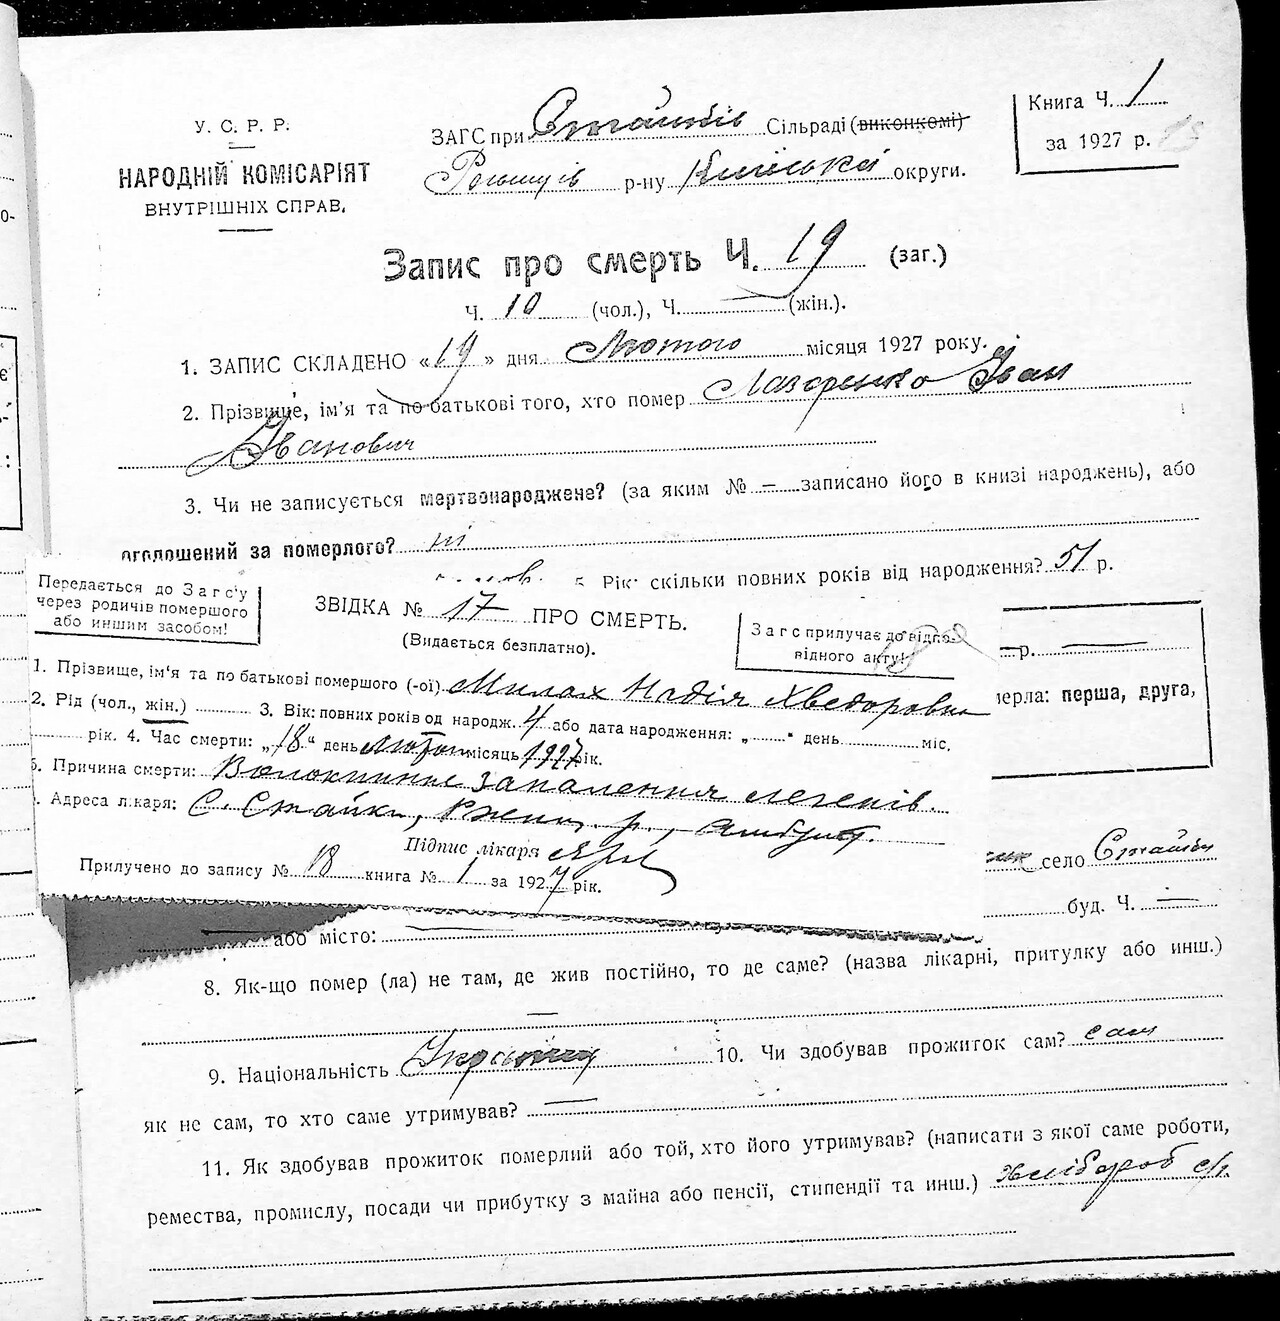 У. С. Р. Р.
НАРОДНІЙ КОМІСАРІЯТ
ВНУТРІШНІХ СПРАВ.
ЗАГС при Стайків Сільраді (виконкомі)
р-ну Київської округи.
Книга Ч. 1
за 1927 р.
Запис про смерть Ч. 19 (заг.)
Ч. 10 (чол.), Ч. — (жін.).
1. ЗАПИС СКЛАДЕНО «19» дня Лютого місяця 1927 року.
2. Прізвище, ім'я та по батькові того, хто помер Лазоренко Іван
Іванович
3. Чи не записується мертвонароджене? (за яким № — записано його в книзі народжень), або
оголошений за померлого? ні
Рік: скільки повних років від народження? 51 р.
Передається до Загс'у
через родичів помершого
або иншим засобом!
ЗВІДКА № 17 ПРО СМЕРТЬ.
(Видається безплатно).
Загс прилучає до відпо-
відного акту!
р. —
мерла: перша, друга,
1. Прізвище, ім'я та по батькові помершого (-ої) Милах Надія Хведоровна
2. Рід (чол., жін.) 3. Вік: повних років од народж. 4 або дата народження: „ “ день міс.
рік. 4. Час смерти: „18“ день лютого місяць 1927 рік.
5. Причина смерти: Волокнинне запалення легенів.
Адреса лікаря: С. Стайки, Ржищ. р., амбулат.
Підпис лікаря
Прилучено до запису № 18 книга № 1 за 1927 рік.
село Стайки
буд. Ч. —
або місто: —
8. Як-що помер (ла) не там, де жив постійно, то де саме? (назва лікарні, притулку або инш.)
—
9. Національність Українець 10. Чи здобував прожиток сам? сам
як не сам, то хто саме утримував? —
11. Як здобував прожиток померлий або той, хто його утримував? (написати з якої саме роботи,
ремества, промислу, посади чи прибутку з майна або пенсії, стипендії та инш.) хлібороб с/г.